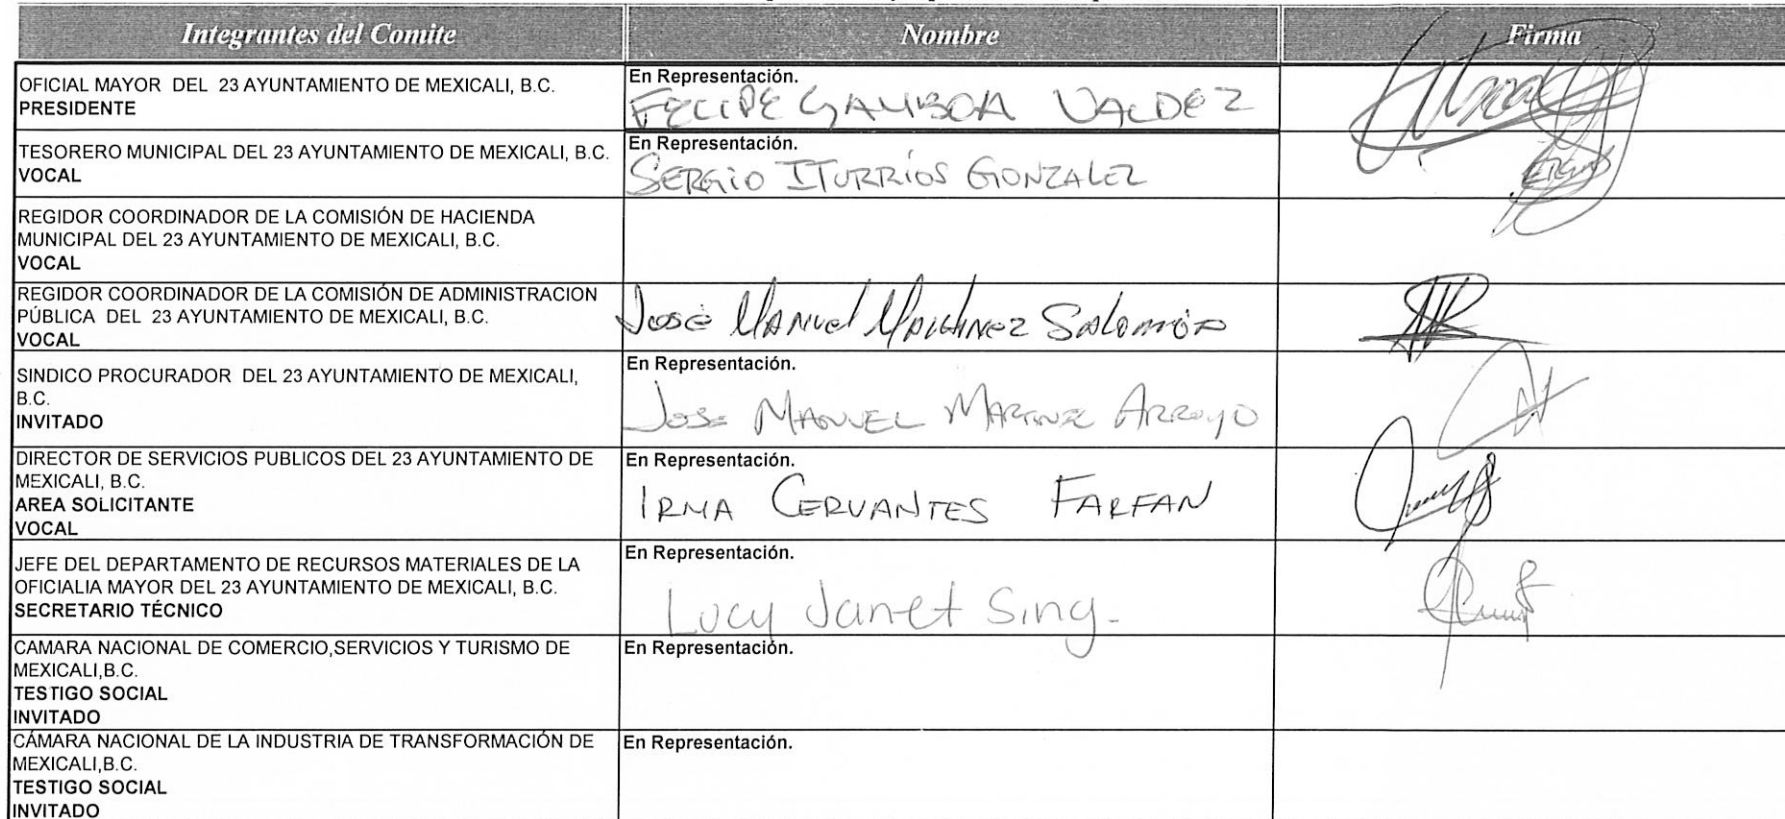 Integrantes del Comite Nombre Firma
OFICIAL MAYOR DEL 23 AYUNTAMIENTO DE MEXICALI, B.C.
PRESIDENTE
En Representación.
FELIPE GAMBOA VALDEZ
TESORERO MUNICIPAL DEL 23 AYUNTAMIENTO DE MEXICALI, B.C.
VOCAL
En Representación.
SERGIO ITURRÍOS GONZALEZ
REGIDOR COORDINADOR DE LA COMISIÓN DE HACIENDA
MUNICIPAL DEL 23 AYUNTAMIENTO DE MEXICALI, B.C.
VOCAL
REGIDOR COORDINADOR DE LA COMISIÓN DE ADMINISTRACION
PÚBLICA DEL 23 AYUNTAMIENTO DE MEXICALI, B.C.
VOCAL
José Manuel Martinez Salomón
SINDICO PROCURADOR DEL 23 AYUNTAMIENTO DE MEXICALI,
B.C.
INVITADO
En Representación.
JOSE MANUEL MARTINEZ ARROYO
DIRECTOR DE SERVICIOS PUBLICOS DEL 23 AYUNTAMIENTO DE
MEXICALI, B.C.
AREA SOLICITANTE
VOCAL
En Representación.
IRMA CERVANTES FARFAN
JEFE DEL DEPARTAMENTO DE RECURSOS MATERIALES DE LA
OFICIALIA MAYOR DEL 23 AYUNTAMIENTO DE MEXICALI, B.C.
SECRETARIO TÉCNICO
En Representación.
Lucy Janet Sing.
CAMARA NACIONAL DE COMERCIO,SERVICIOS Y TURISMO DE
MEXICALI,B.C.
TESTIGO SOCIAL
INVITADO
En Representación.
CÁMARA NACIONAL DE LA INDUSTRIA DE TRANSFORMACIÓN DE
MEXICALI,B.C.
TESTIGO SOCIAL
INVITADO
En Representación.